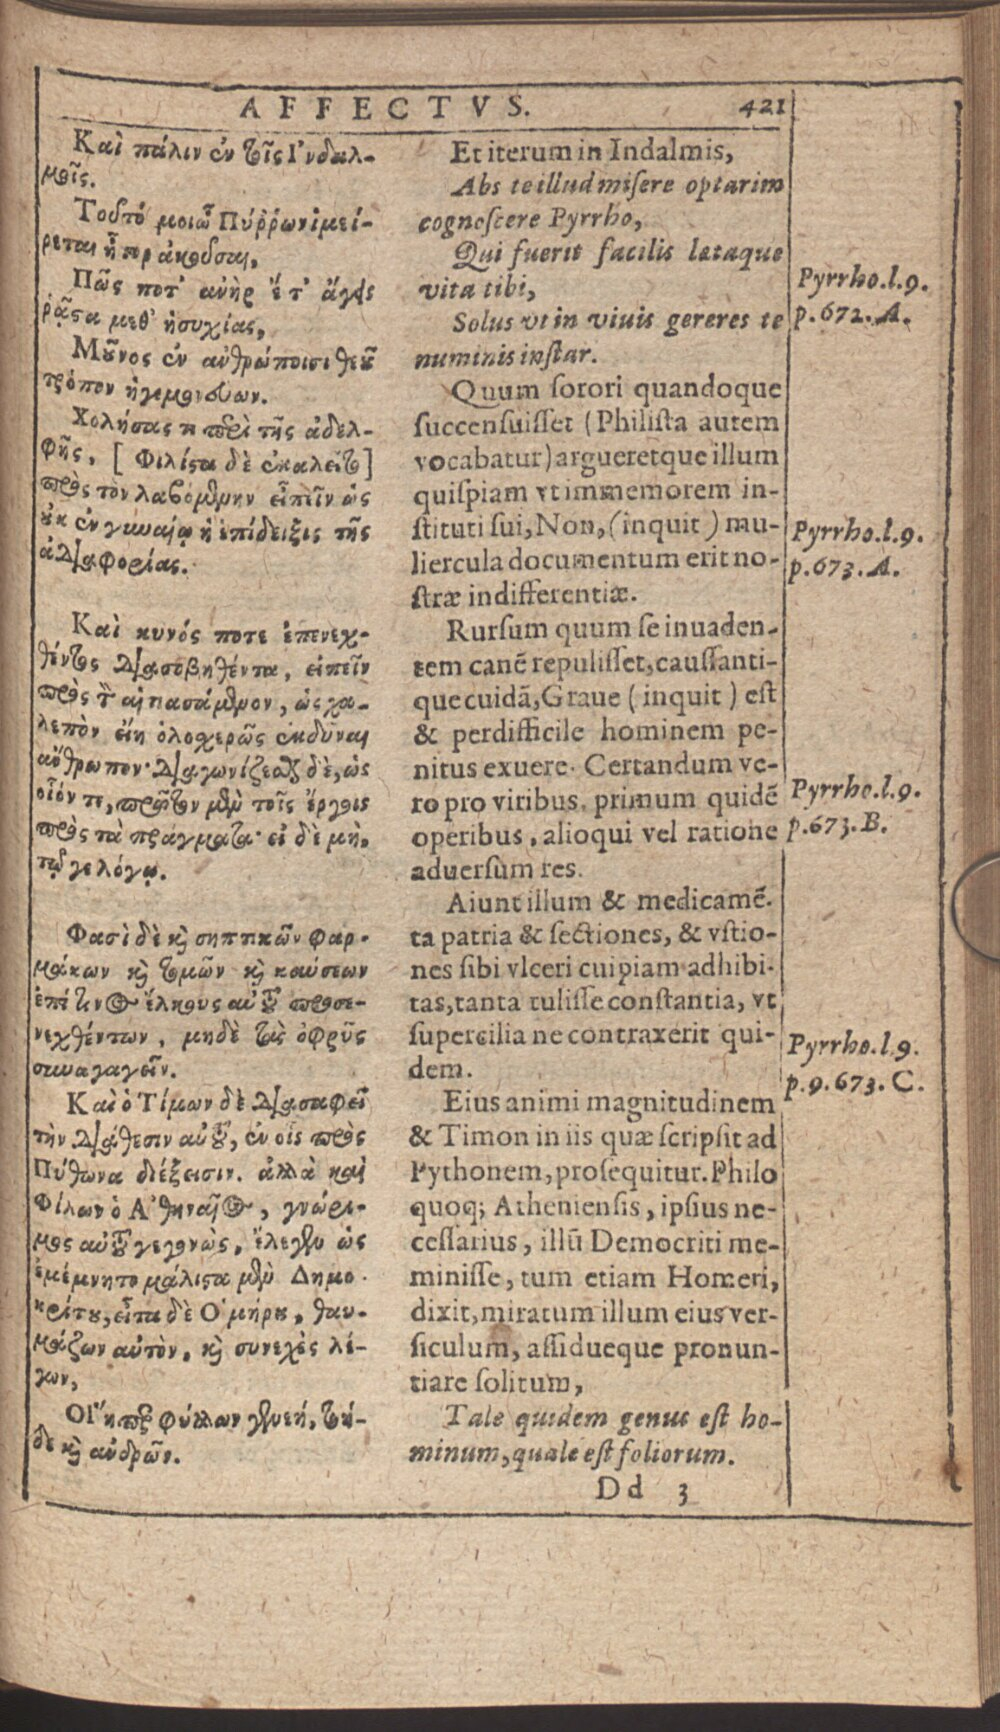 AFFECTVS. 421
Καὶ πάλιν ἐν τοῖς Ἰνδαλ-
μοῖς.
Τοῦτό μοι ὦ Πύῤῥων ἱμεί-
ρεται ἦτορ ἀκοῦσαι,
Πῶς ποτ' ἀνὴρ ἔτ' ἄγεις
ῥᾷστα μεθ' ἡσυχίας,
Μοῦνος ἐν ἀνθρώποισι θεοῦ
τρόπον ἡγεμονεύων.
Χολήσας περὶ τῆς ἀδελ-
φῆς, [ Φιλίστα δὲ ἐκαλεῖτο]
πρὸς τὸν λαβόμενον εἰπεῖν ὡς
οὐκ ἐν γυναίῳ ἡ ἐπίδειξις τῆς
ἀδιαφορίας.
Καὶ κυνός ποτε ἐπενεχ-
θέντος διασοβηθέντα, εἰπεῖν
πρὸς τὸν αἰτιασάμενον, ὡς χα-
λεπὸν εἴη ὁλοχερῶς ἐκδῦναι
ἄνθρωπον· διαγωνίζεσθαι δὲ, ὡς
οἷόν τε, πρῶτον μὲν τοῖς ἔργοις
πρὸς τὰ πράγματα· εἰ δὲ μὴ,
τῷ γε λόγῳ.
Φασὶ δὲ καὶ σηπτικῶν φαρ-
μάκων καὶ τομῶν καὶ καύσεων
ἐπί τινος ἕλκους αὐτοῦ προσε-
νεχθέντων, μηδὲ τὰς ὀφρῦς
συναγαγεῖν.
Καὶ ὁ Τίμων δὲ διασαφεῖ
τὴν διάθεσιν αὐτοῦ, ἐν οἷς πρὸς
Πύθωνα διέξεισιν. ἀλλὰ καὶ
Φίλων ὁ Ἀθηναῖος, γνώρι-
μος αὐτοῦ γεγονὼς, ἔλεγεν ὡς
ἐμέμνητο μάλιστα μὲν Δημο-
κρίτου, εἶτα δὲ Ὁμήρου, θαυ-
μάζων αὐτὸν, καὶ συνεχὲς λέ-
γων,
Οἵη περ φύλλων γενεή, τοιή-
δε καὶ ἀνδρῶν.
Et iterum in Indalmis,
Abs te illud misere optarim
cognoscere Pyrrho,
Qui fuerit facilis lætaque
vita tibi,
Solus vt in viuis gereres te
numinis instar.
Quum sorori quandoque
succensuisset (Philista autem
vocabatur) argueretque illum
quispiam vt immemorem in-
stituti sui, Non, (inquit) mu-
liercula documentum erit no-
stræ indifferentiæ.
Rursum quum se inuaden-
tem canē repulisset, caussanti-
que cuidā, Graue (inquit) est
& perdifficile hominem pe-
nitus exuere. Certandum ve-
ro pro viribus, primum quidē
operibus, alioqui vel ratione
aduersum res.
Aiunt illum & medicamē-
ta patria & sectiones, & vstio-
nes sibi vlceri cuipiam adhibi-
tas, tanta tulisse constantia, vt
supercilia ne contraxerit qui-
dem.
Eius animi magnitudinem
& Timon in iis quæ scripsit ad
Pythonem, prosequitur. Philo
quoq; Atheniensis, ipsius ne-
cessarius, illū Democriti me-
minisse, tum etiam Homeri,
dixit, miratum illum eius ver-
siculum, assidueque pronun-
tiare solitum,
Tale quidem genus est ho-
minum, quale est foliorum.
Dd 3
Pyrrho.l.9.
p.672.A.
Pyrrho.l.9.
p.673.A.
Pyrrho.l.9.
p.673.B.
Pyrrho.l.9.
p.9.673.C.